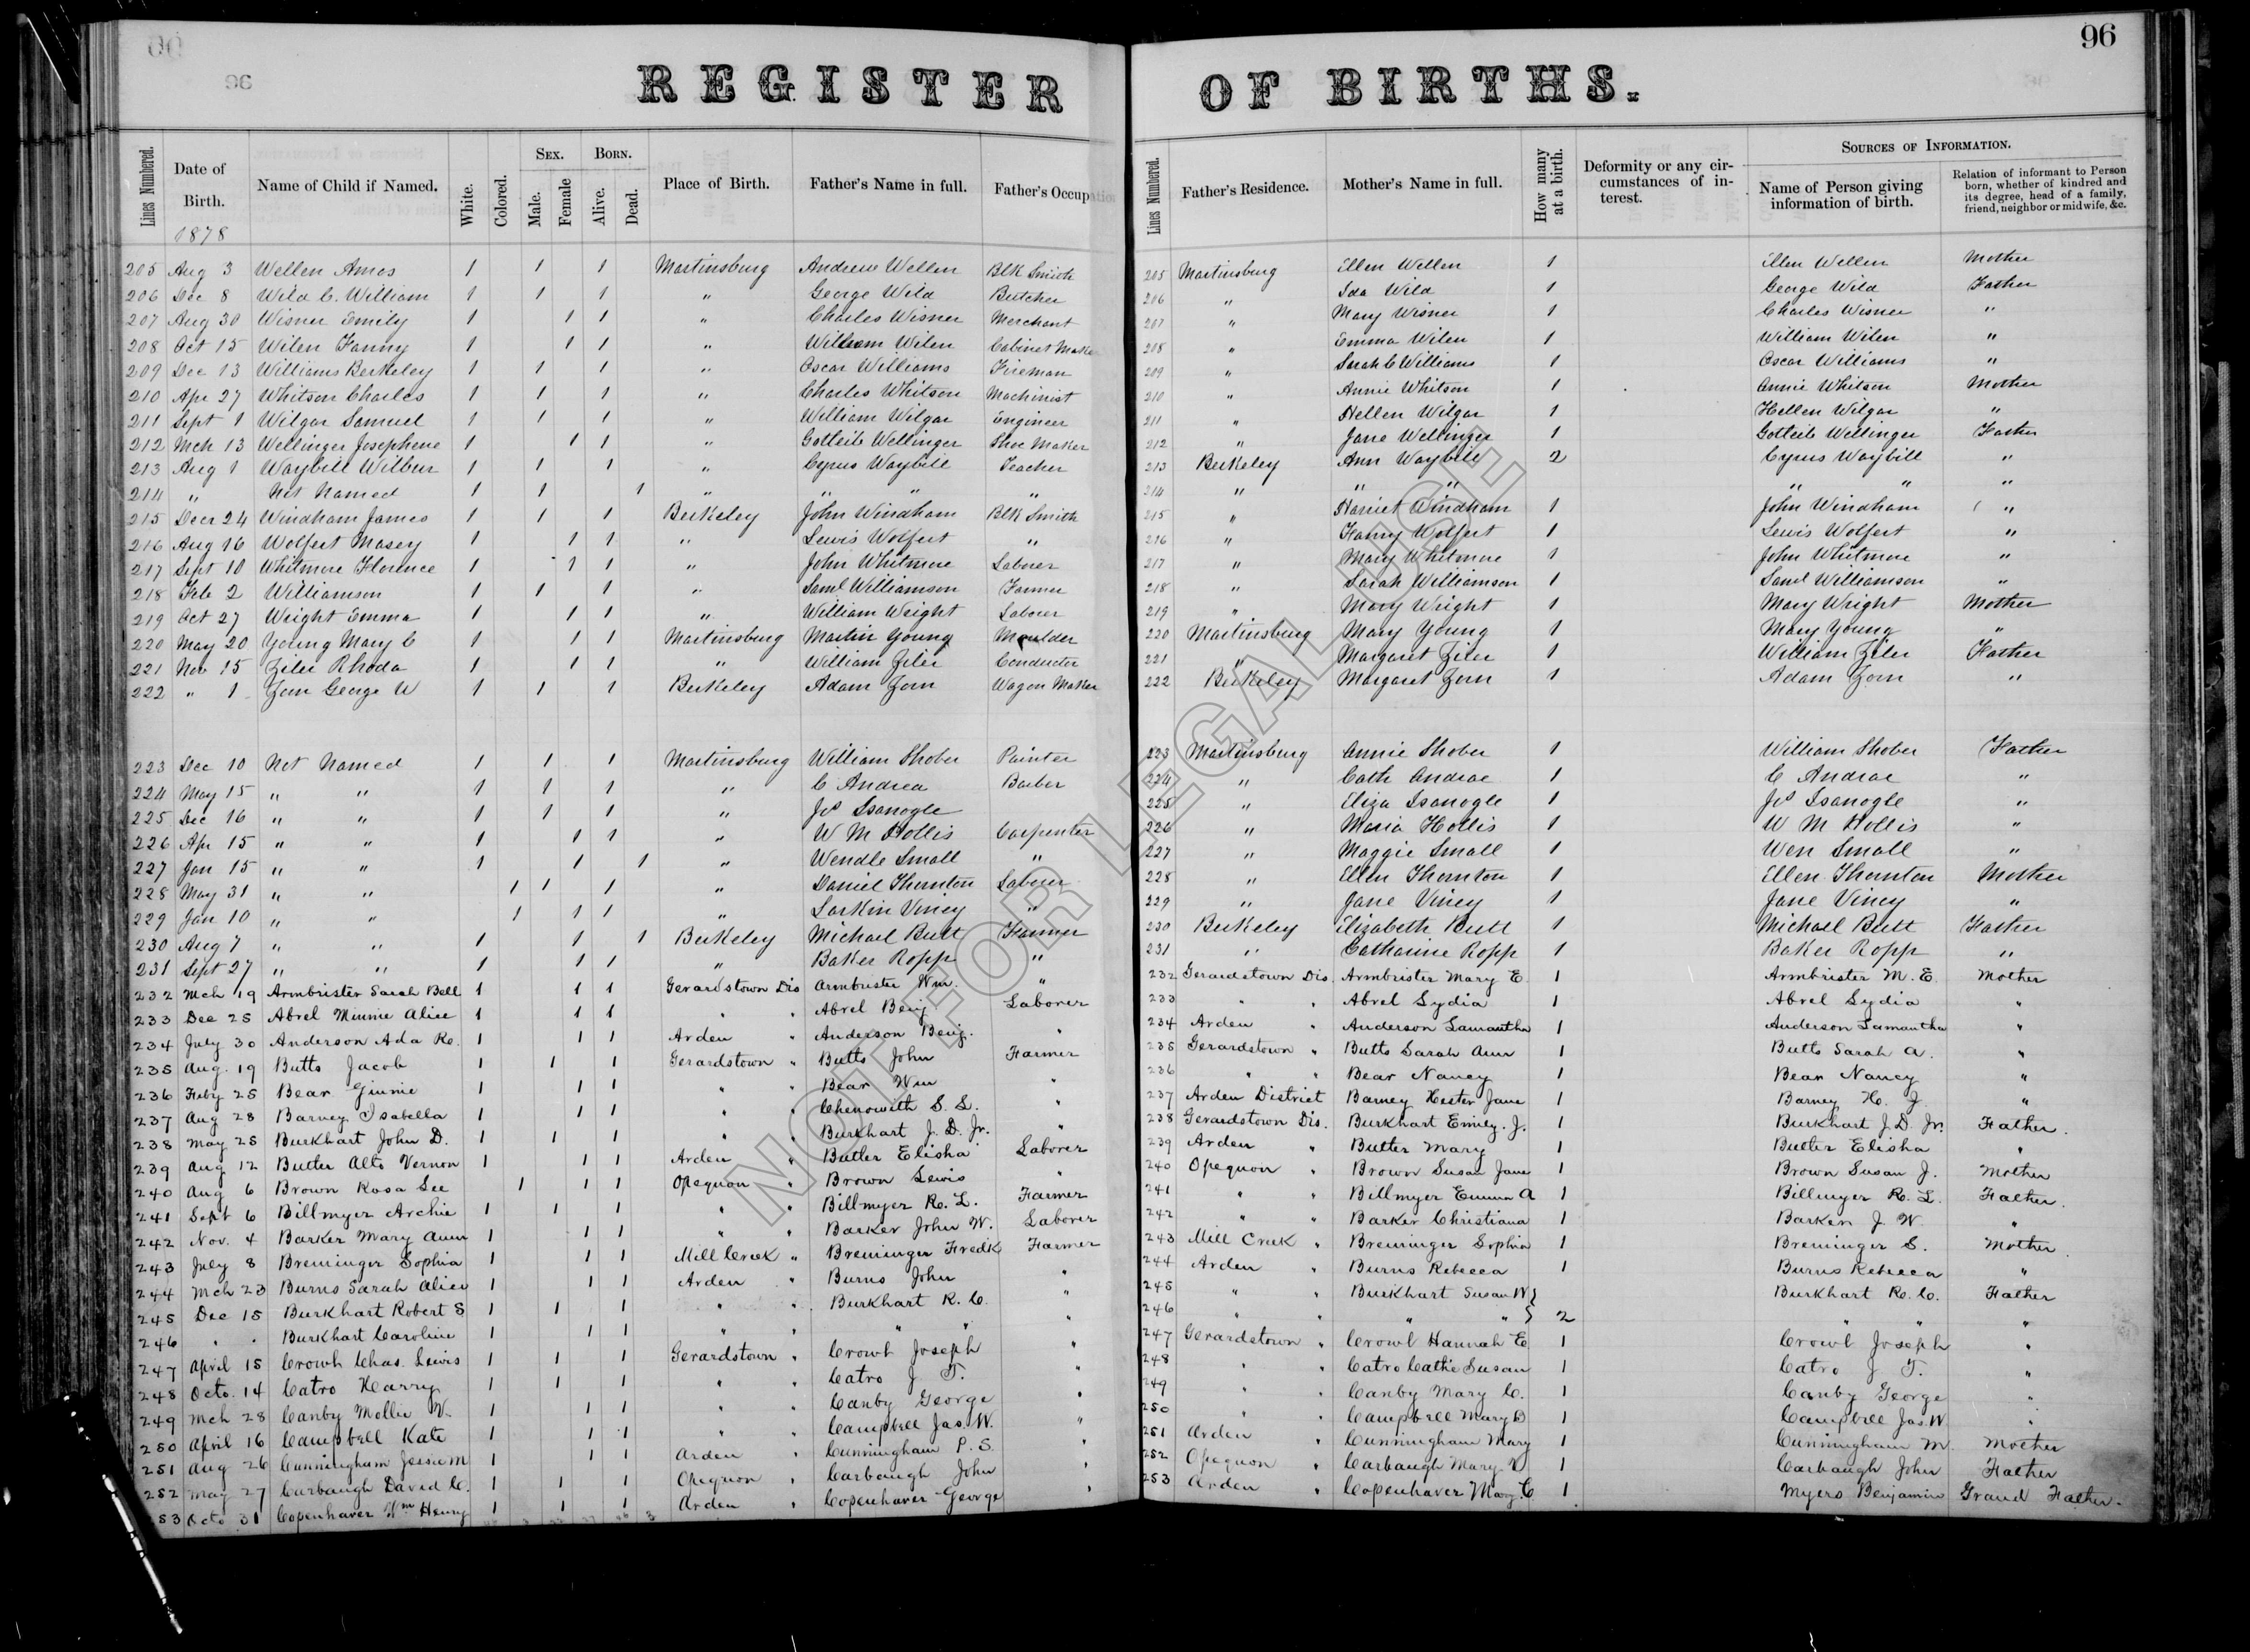 96
REGISTER OF BIRTHS.
Lines Numbered. Date of Birth. Name of Child if Named. White. Colored. Sex. Male. Female Born. Alive. Dead. Place of Birth. Father's Name in full. Father's Occupation Lines Numbered. Father's Residence. Mother's Name in full. How many at a birth. Deformity or any circumstances of interest. Sources of Information. Name of Person giving information of birth. Relation of informant to Person born, whether of kindred and its degree, head of a family, friend, neighbor or midwife, &c.
1878
205 Aug 3 Wellen Amos 1 1 1 Martinsburg Andrew Wellen Blk Smith 205 Martinsburg Ellen Wellen 1 Ellen Wellen Mother
206 Dec 8 Wild C. William 1 1 1 " George Wild Butcher 206 " Ida Wild 1 George Wild Father
207 Aug 30 Wisner Emily 1 1 1 " Charles Wisner Merchant 207 " Mary Wisner 1 Charles Wisner "
208 Oct 15 Wilen Fanny 1 1 1 " William Wilen Cabinet Make 208 " Emma Wilen 1 William Wilen "
209 Dec 13 Williams Berkeley 1 1 1 " Oscar Williams Fireman 209 " Sarah C Williams 1 Oscar Williams "
210 Apr 27 Whitson Charles 1 1 1 " Charles Whitson Machinist 210 " Annie Whitson 1 Annie Whitson Mother
211 Sept 1 Wilgar Samuel 1 1 1 " William Wilgar Engineer 211 " Hellen Wilgar 1 Hellen Wilgar "
212 Mch 13 Wellinger Josephene 1 1 1 " Gotleib Wellinger Shoe Maker 212 " Jane Wellinger 1 Gotleib Wellinger Father
213 Aug 1 Waybill Wilbur 1 1 1 " Cyrus Waybill Teacher 213 Berkeley Ann Waybill 2 Cyrus Waybill "
214 " Not Named 1 1 1 " " " " 214 " " " " " "
215 Decr 24 Windham James 1 1 1 Berkeley John Windham Blk Smith 215 " Harriet Windham 1 John Windham "
216 Aug 16 Wolfert Masey 1 1 1 " Lewis Wolfert " 216 " Fanny Wolfert 1 Lewis Wolfert "
217 Sept 10 Whitmore Florence 1 1 1 " John Whitmore Laborer 217 " Mary Whitmore 1 John Whitmore "
218 Feb 2 Williamson 1 1 1 " Saml Williamson Farmer 218 " Sarah Williamson 1 Saml Williamson "
219 Oct 27 Wright Emma 1 1 1 " William Wright Laborer 219 " Mary Wright 1 Mary Wright Mother
220 May 20 Young Mary C 1 1 1 Martinsburg Martin Young Moulder 220 Martinsburg Mary Young 1 Mary Young "
221 Nov 15 Ziler Rhoda 1 1 1 " William Ziler Conductor 221 " Margaret Ziler 1 William Ziler Father
222 " 1 Zorn George W 1 1 1 Berkeley Adam Zorn Wagon Maker 222 Berkeley Margaret Zorn 1 Adam Zorn "
223 Dec 10 Not Named 1 1 1 Martinsburg William Shober Painter 223 Martinsburg Annie Shober 1 William Shober Father
224 May 15 " " 1 1 1 " C Andrea Barber 224 " Cath Andrae 1 C Andrae "
225 Dec 16 " " 1 1 1 " Js Isanogle 225 " Eliza Isanogle 1 Js Isanogle "
226 Apr 15 " " 1 1 1 " W M Hollis Carpenter 226 " Maria Hollis 1 W M Hollis "
227 Jan 15 " " 1 1 1 " Wendle Small " 227 " Maggie Small 1 Wen Small "
228 May 31 " " 1 1 1 " Daniel Thornton Laborer 228 " Ellen Thornton 1 Ellen Thornton Mother
229 Jan 10 " " 1 1 1 " Larkin Viney " 229 " Jane Viney 1 Jane Viney "
230 Aug 7 " " 1 1 1 Berkeley Michael Butt Farmer 230 Berkeley Elizabeth Butt 1 Michael Butt Father
231 Sept 27 " " 1 1 1 " Baker Ropp " 231 " Catharine Ropp 1 Baker Ropp "
232 Mch 19 Armbrister Sarah Bell 1 1 1 Gerardstown Dis Armbrister Wm. " 232 Gerardstown Dis. Armbrister Mary E. 1 Armbrister M. E. Mother
233 Dec 25 Abrel Minnie Alice 1 1 1 " " Abrel Benj Laborer 233 " " Abrel Lydia 1 Abrel Lydia "
234 July 30 Anderson Ada Ro. 1 1 1 Arden " Anderson Benj. " 234 Arden " Anderson Samantha 1 Anderson Samantha "
235 Aug. 19 Butts Jacob 1 1 1 Gerardstown " Butts John Farmer 235 Gerardstown " Butts Sarah Ann 1 Butts Sarah A. "
236 Feby 25 Bear Ginnie 1 1 1 " " Bear Wm " 236 " " Bear Nancy 1 Bear Nancy "
237 Aug 28 Barney Isabella 1 1 1 " " Chenowith S. S. " 237 Arden District Barney Hester Jane 1 Barney H. J. "
238 May 25 Burkhart John D. 1 1 1 " " Burkhart J. D. Jr. " 238 Gerardstown Dis. Burkhart Emily. J. 1 Burkhart J. D. Jr. Father.
239 Aug 12 Butler Alto Vernon 1 1 1 Arden " Butler Elisha Laborer 239 Arden " Butler Mary 1 Butler Elisha "
240 Aug 6 Brown Rosa Lee 1 1 1 Opequon " Brown Lewis " 240 Opequon " Brown Susan Jane 1 Brown Susan J. Mother
241 Sept 6 Billmyer Archie 1 1 1 " " Billmyer R. L. Farmer 241 " " Billmyer Emma A 1 Billmyer R. L. Father.
242 Nov. 4 Barker Mary Ann 1 1 1 " " Barker John W. Laborer 242 " " Barker Christiana 1 Barker J. W. "
243 July 8 Breninger Sophia 1 1 1 Mill Creek " Breninger Fredk Farmer 243 Mill Creek " Breninger Sophia 1 Breninger S. Mother.
244 Mch 23 Burns Sarah Alice 1 1 1 Arden " Burns John " 244 Arden " Burns Rebecca 1 Burns Rebecca "
245 Dec 15 Burkhart Robert S 1 1 1 " " Burkhart R. C. " 245 " " Burkhart Susan W } Burkhart R. C. Father
246 " " Burkhart Caroline 1 1 1 " " " " " 246 " " " " } 2 " " "
247 April 15 Crowl Chas. Lewis 1 1 1 Gerardstown " Crowl Joseph " 247 Gerardstown " Crowl Hannah E. 1 Crowl Joseph "
248 Octo. 14 Catro Harry 1 1 1 " " Catro J T. " 248 " " Catro Cathe Susan 1 Catro J T. "
249 Mch 28 Canby Mollie V. 1 1 1 " " Canby George " 249 " " Canby Mary C. 1 Canby George "
250 April 16 Campbell Kate 1 1 1 " " Campbell Jas. W. " 250 " " Campbell Mary B 1 Campbell Jas. W. "
251 Aug 26 Cunningham Jessie M 1 1 1 Arden " Cunningham P. S. " 251 Arden " Cunningham Mary 1 Cunningham M. Mother
252 May 27 Carbaugh David C. 1 1 1 Opequon " Carbaugh John " 252 Opequon " Carbaugh Mary V 1 Carbaugh John Father
253 Octo 31 Copenhaver Wm Henry 1 1 1 Arden " Copenhaver George " 253 Arden " Copenhaver Mary C 1 Myers Benjamin Grand Father.
NOT FOR LEGAL USE